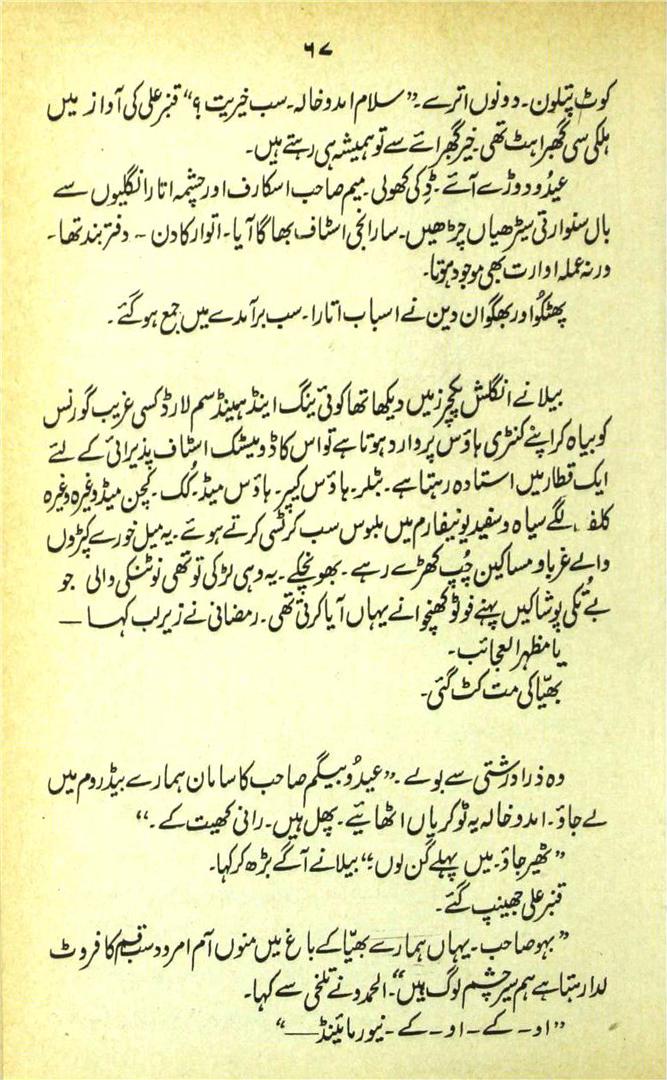 ۶۷
کوٹ پتلون۔ دونوں اترے۔ ”سلام امدو خالہ۔ سب خیریت؟“ قنبر علی کی آواز میں
ہلکی سی گھبراہٹ تھی۔ خیر گھبرائے سے تو ہمیشہ ہی رہتے ہیں۔
عیدُو دوڑے آئے۔ ڈِکی کھولی۔ میم صاحب اسکارف اور چشمہ اتار انگلیوں سے
بال سنوارتی سیڑھیاں چڑھیں۔ سارا نجی اسٹاف بھاگا آیا۔ اتوار کا دن ۔۔ دفتر بند تھا۔
ورنہ عملہ ادارت بھی موجود ہوتا۔
پھٹکُو اور بھگوان دین نے اسباب اتارا۔ سب برآمدے میں جمع ہو گئے۔
بیلا نے انگلش پکچرز میں دیکھا تھا کوئی ینگ اینڈ ہینڈسم لارڈ کسی غریب گورنس
کو بیاہ کر اپنے کنٹری ہاؤس پر وارد ہوتا ہے تو اس کا ڈومیسٹک اسٹاف پذیرائی کے لئے
ایک قطار میں استادہ رہتا ہے۔ بٹلر۔ ہاؤس کیپر۔ ہاؤس میڈ۔ کُک۔ کچن میڈ وغیرہ وغیرہ
کلف لگے سیاہ و سفید یونیفارم میں ملبوس سب کرٹسی کرتے ہوئے۔ یہ میل خورے کپڑوں
والے غربا و مساکین چُپ کھڑے رہے۔ بھونچکے۔ یہ وہی لڑکی تو تھی نوٹنکی والی جو
بے تُکی پوشاکیں پہنے فوٹو کھنچوانے یہاں آیا کرتی تھی۔ رمضانی نے زیرِ لب کہا —
یا مظہر العجائب۔
بھیّا کی مت کٹ گئی۔
وہ ذرا درشتی سے بولے۔ ”عیدُو بیگم صاحب کا سامان ہمارے بیڈ روم میں
لے جاؤ۔ امدو خالہ یہ ٹوکریاں اٹھائیے۔ پھل ہیں۔ رانی کھیت کے۔“
”ٹھیر جاؤ۔ میں پہلے گن لوں۔“ بیلا نے آگے بڑھ کر کہا۔
قنبر علی جھینپ گئے۔
”بہو صاحب۔ یہاں ہمارے بھیّا کے باغ میں منوں آم امرود سب قسم کا فروٹ
لدا رہتا ہے ہم سیر چشم لوگ ہیں“۔ الحمدو نے تلخی سے کہا۔
”او۔ کے۔ او۔ کے۔ نیور مائینڈ—“